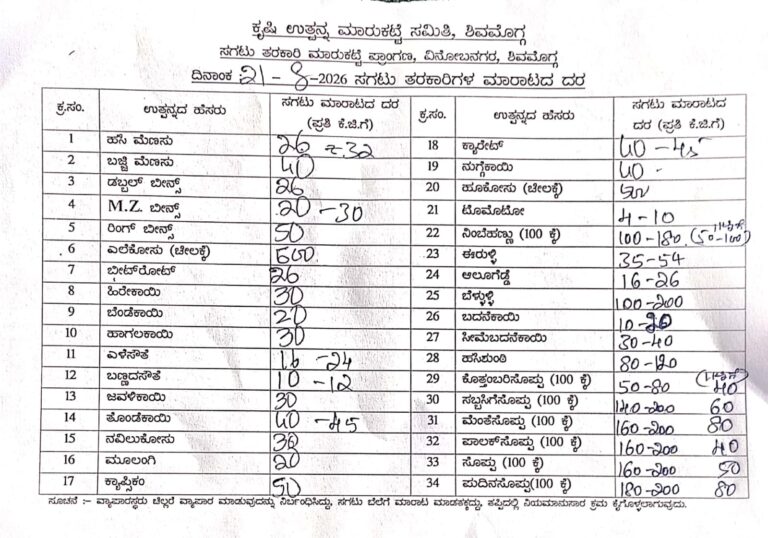 ಕೃಷಿ ಉತ್ಪನ್ನ ಮಾರುಕಟ್ಟೆ ಸಮಿತಿ, ಶಿವಮೊಗ್ಗ
ಸಗಟು ತರಕಾರಿ ಮಾರುಕಟ್ಟೆ ಪ್ರಾಂಗಣ, ವಿನೋಬನಗರ, ಶಿವಮೊಗ್ಗ
ದಿನಾಂಕ 21-8-2026 ಸಗಟು ತರಕಾರಿಗಳ ಮಾರಾಟದ ದರ
ಕ್ರ.ಸಂ. ಉತ್ಪನ್ನದ ಹೆಸರು ಸಗಟು ಮಾರಾಟದ ದರ (ಪ್ರತಿ ಕೆ.ಜಿ.ಗೆ)
1 ಹಸಿ ಮೆಣಸು 26 - 32
2 ಬಜ್ಜಿ ಮೆಣಸು 40
3 ಡಬ್ಬಲ್ ಬೀನ್ಸ್ 26
4 M.Z. ಬೀನ್ಸ್ 20 - 30
5 ರಿಂಗ್ ಬೀನ್ಸ್ 50
6 ಎಲೆಕೋಸು (ಚೀಲಕ್ಕೆ) 600
7 ಬೀಟ್‌ರೋಟ್ 26
8 ಹಿರೇಕಾಯಿ 30
9 ಬೆಂಡೆಕಾಯಿ 20
10 ಹಾಗಲಕಾಯಿ 30
11 ಎಳೆಸೌತೆ 16 - 24
12 ಬಣ್ಣದಸೌತೆ 10 - 12
13 ಜವಳಿಕಾಯಿ 30
14 ತೊಂಡೆಕಾಯಿ 40 - 45
15 ನವಿಲುಕೋಸು 36
16 ಮೂಲಂಗಿ 20
17 ಕ್ಯಾಪ್ಸಿಕಂ 50
ಕ್ರ.ಸಂ. ಉತ್ಪನ್ನದ ಹೆಸರು ಸಗಟು ಮಾರಾಟದ ದರ (ಪ್ರತಿ ಕೆ.ಜಿ.ಗೆ)
18 ಕ್ಯಾರೇಟ್ 40 - 45
19 ನುಗ್ಗೆಕಾಯಿ 40
20 ಹೂಕೋಸು (ಚೀಲಕ್ಕೆ)
21 ಟೊಮೋಟೋ 4 - 10
22 ನಿಂಬೆಹಣ್ಣು (100 ಕ್ಕೆ) 100 - 180 (50-100)
23 ಈರುಳ್ಳಿ 35 - 54
24 ಆಲೂಗೆಡ್ಡೆ 16 - 26
25 ಬೆಳ್ಳುಳ್ಳಿ 100 - 200
26 ಬದನೆಕಾಯಿ 10 - 20
27 ಸೀಮೆಬದನೆಕಾಯಿ 30 - 40
28 ಹಸಿಶುಂಠಿ 80 - 120
29 ಕೊತ್ತಂಬರಿಸೊಪ್ಪು (100 ಕ್ಕೆ) 50 - 80 40
30 ಸಬ್ಬಸಿಗೆಸೊಪ್ಪು (100 ಕ್ಕೆ) 140 - 200 60
31 ಮೆಂತೆಸೊಪ್ಪು (100 ಕ್ಕೆ) 160 - 200 80
32 ಪಾಲಕ್‌ಸೊಪ್ಪು (100 ಕ್ಕೆ) 160 - 200 40
33 ಸೊಪ್ಪು (100 ಕ್ಕೆ) 160 - 200 50
34 ಪುದಿನಸೊಪ್ಪು(100 ಕ್ಕೆ) 180 - 200 80
ಸೂಚನೆ :- ವ್ಯಾಪಾರಸ್ಥರು ಚಿಲ್ಲರೆ ವ್ಯಾಪಾರ ಮಾಡುವುದನ್ನು ನಿರ್ಬಂಧಿಸಿದ್ದು, ಸಗಟು ಬೆಲೆಗೆ ಮಾರಾಟ ಮಾಡತಕ್ಕದ್ದು, ತಪ್ಪಿದಲ್ಲಿ ನಿಯಮಾನುಸಾರ ಕ್ರಮ ಕೈಗೊಳ್ಳಲಾಗುವುದು.